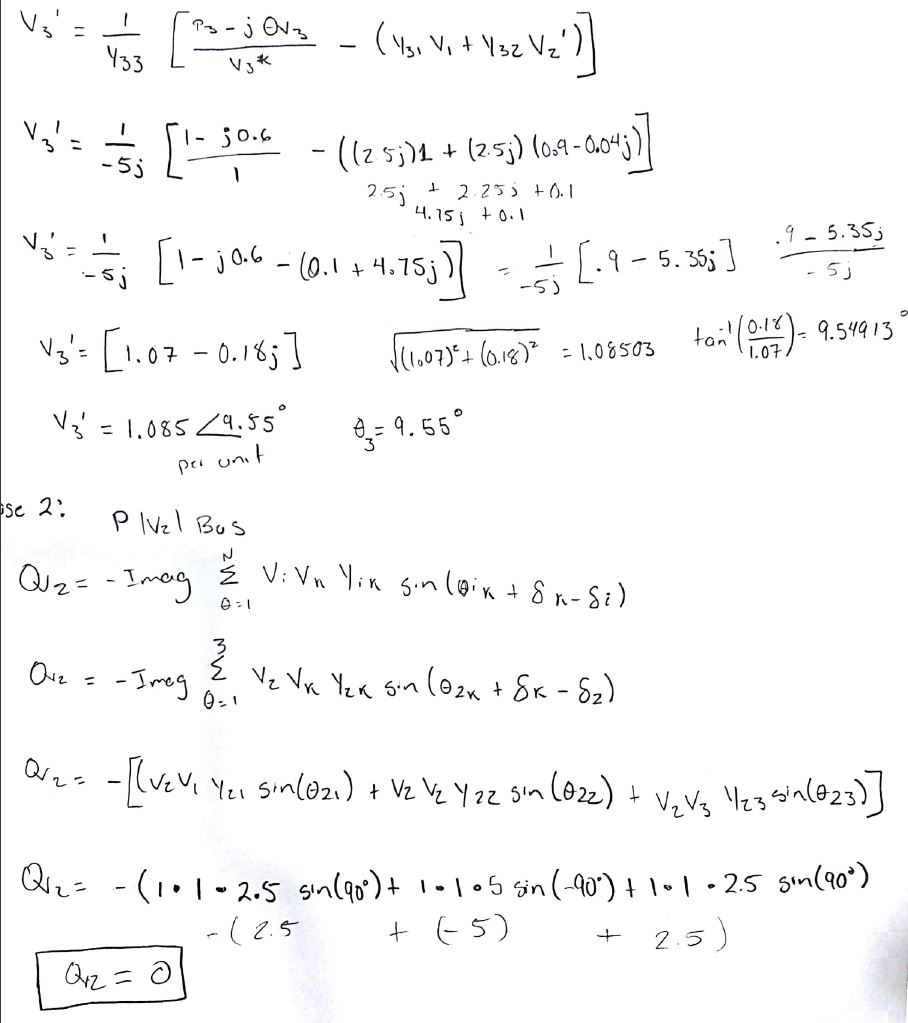 V₃' = 1/Y₃₃ [ (P₃ - jQ₃)/V₃* - (Y₃₁ V₁ + Y₃₂ V₂') ]
V₃' = 1/-5j [ (1 - j0.6)/1 - ((2.5j)1 + (2.5j)(0.9 - 0.04j) ]
2.5j + 2.25j + 0.1
4.75j + 0.1
V₃' = 1/-5j [1 - j0.6 - (0.1 + 4.75j)] = 1/-5j [.9 - 5.35j] (.9 - 5.35j)/-5j
V₃' = [1.07 - 0.18j] √((1.07)² + (0.18)²) = 1.08503 tan⁻¹(0.18/1.07) = 9.54913°
V₃' = 1.085 ∠9.55° θ₃ = 9.55°
per unit
se 2: P |V₂| Bus
Q₂ = - Imag Σ(θ=1 to N) Vi Vn Yin sin(θin + δn - δi)
Q₂ = - Imag Σ(θ=1 to 3) V₂ Vκ Y₂κ sin(θ₂κ + δκ - δ₂)
Q₂ = -[(V₂V₁ Y₂₁ sin(θ₂₁) + V₂ V₂ Y₂₂ sin(θ₂₂) + V₂V₃ Y₂₃ sin(θ₂₃)]
Q₂ = - (1•1•2.5 sin(90°) + 1•1•5 sin(-90°) + 1•1•2.5 sin(90°)
-(2.5 + (-5) + 2.5)
Q₂ = 0